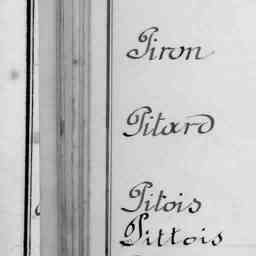 Piron
Pitard
Pitois
Pittois